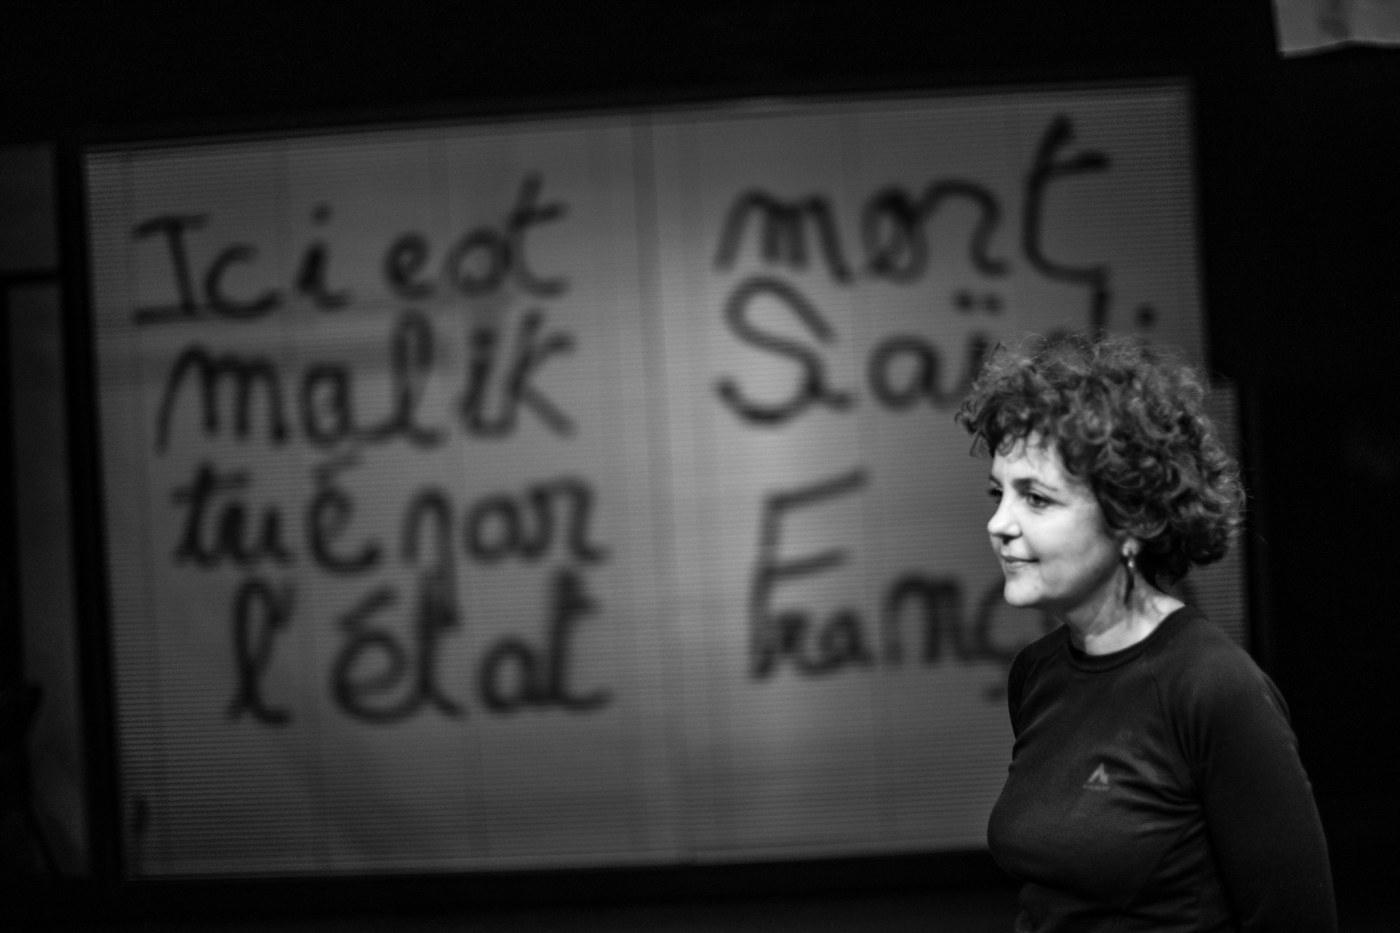 Ici est mort
malik Saï
tué par
l'état Franç